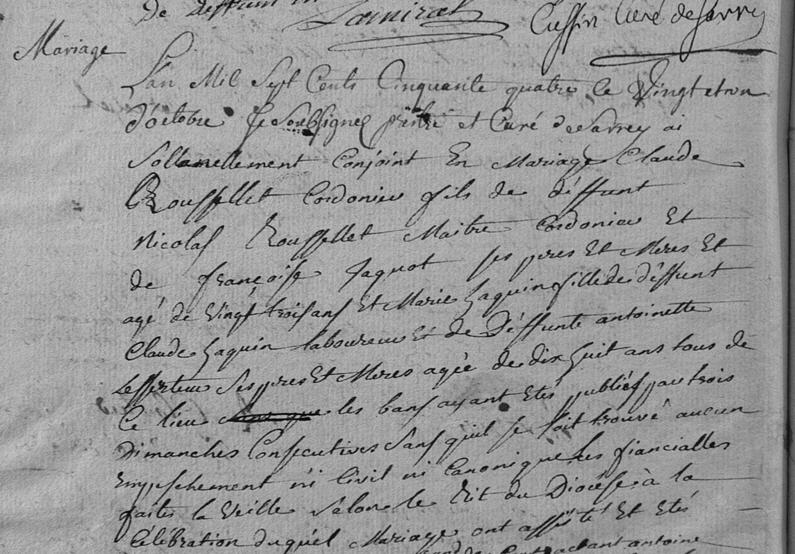 De deffunt
Lamiral Cussin Curé de Sarrey
Mariage
Lan Mil Sept Cents Cinquante quatre le Vingt et un
d'octobre Je Soubsigné prêtre et Curé de Sarrey ai
Sollanellement Conjoint En Mariage Claude
Rousselet Cordonier fils de deffunt
Nicolas Rousselet Maitre Cordonier Et
de françoise Jaquot ses peres Et Meres Et
agé de Vingt trois ans Et Marie Jaquin fille de déffunt
Claude Jaquin laboureur Et de Déffunte antoinette
ses peres Et Meres agée de dix huit ans tous de
Ce lieu les bans ayant Etés publiés par trois
Dimanches Consecutives Sans quil se soit trouvé aucun
Empeschement ni Civil ni Canonique les fiancialles
faites la Veille Selon le Rit du Diocése à la
Célébration duquél Mariage ont assisté Et Etés
antoine